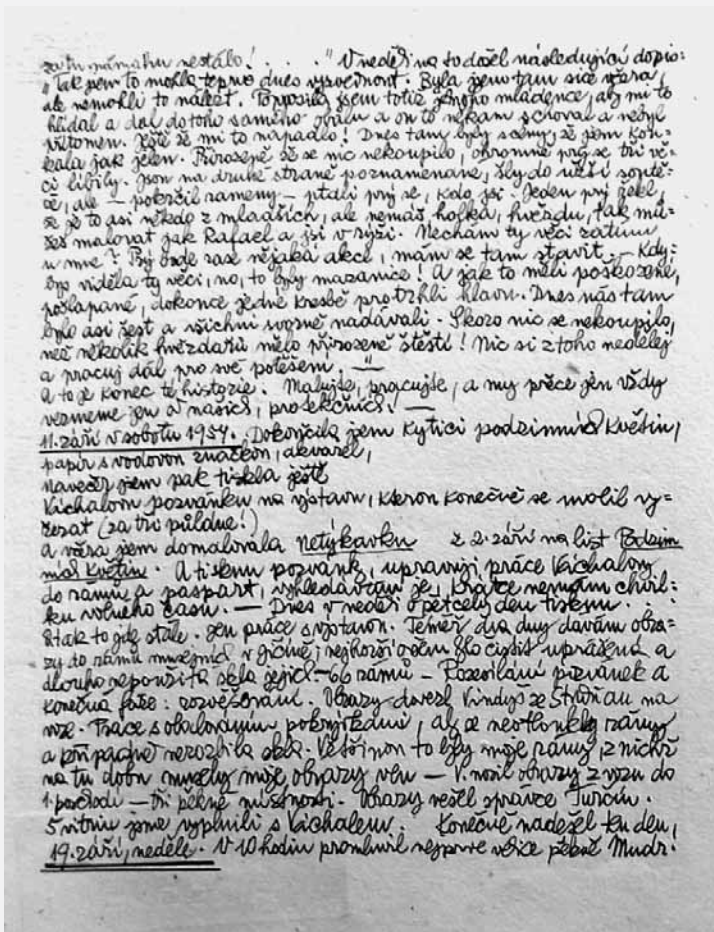 za tu námahu nestálo! . . . " V neděli na to došel následující dopis:
"Tak jsem to mohla teprve dnes vyzvednout. Byla jsem tam sice včera,
ale nemohli to nalézt. Poprosila jsem totiž jednoho mládence, aby mi to
hlídal a dal do toho samého obalu a on to někam schoval a nebyl
přítomen. Ještě že mi to napadlo! Dnes tam byly scény, že jem kou-
kala jak jelen. Přirozeně že se nic nekoupilo, ohromně prý se tři vě-
ci líbily. Jsou na druhé straně poznamenané, šly do užší soutě-
že, ale — pokrčil rameny — ptali prý se, kdo jsi. Jeden prý řekl,
že je to asi někdo z mladších, ale nemáš holka, hvězdu, tak mů-
žeš malovat jak Rafael a jsi v rýži. Nechám ty věci zatím
u mne? Prý bude zase nějaká akce, mám se tam stavit. — Kdy-
bys viděla ty věci, no, to byly mazanice! A jak to měli poškozené,
pošlapané, dokonce jedné kresbě protrhli hlavu. Dnes nás tam
bylo asi šest a všichni svorně nadávali. Skoro nic se nekoupilo,
než několik hvězdářů mělo přirozeně štěstí! Nic si z toho nedělej
a pracuj dál pro své potěšení. —"
A to je konec té historie. Malujte, pracujte, a my přece jen vždy
vezmeme jen od našich, prosekčních! —
11. září v sobotu 1954. Dokončila jsem Kytici podzimních květin,
papír s vodovou značkou, akvarel,
navečer jsem pak tiskla ještě
Váchalovu pozvánku na výstavu, kterou konečně se uvolil vy-
řezat (za tři půldne!)
A včera jem domalovala Netýkavku z 2. září na list Podzim
ních květin. A tisknu pozvánky, upravuji práce Váchalovy
do rámů a paspart, vyhledávám je, krátce nemám chvil-
ku volného času. — Dnes v neděli opět celý den tisknu. -
A tak to jde stále. Jen práce s výstavou. Téměř dva dny dávám obra-
zy do rámů musejních v Jičíně; nejhorší ovšem bylo čistit uprášená a
dlouho nepoužitá skla jejich — 66 rámů — Rozesílání pozvánek a
konečná fáze: rozvěšování. Obrazy dovezl Vindyš ze Studňan na
voze. Práce s obalováním pokrývkami, aby se neotloukly rámy
a případně nerozbila skla. Většinou to byly moje rámy, z nichž
na tu dobu musely moje obrazy ven — V. nosil obrazy z vozu do
1. poschodí — tři pěkné místnosti. Obrazy věšel správce Turčín.
5 vitrin jsme vyplnili s Váchalem. Konečně nadešel ten den,
19. září, neděle. V 10 hodin promluvil nejprve velice pěkně Mudr.